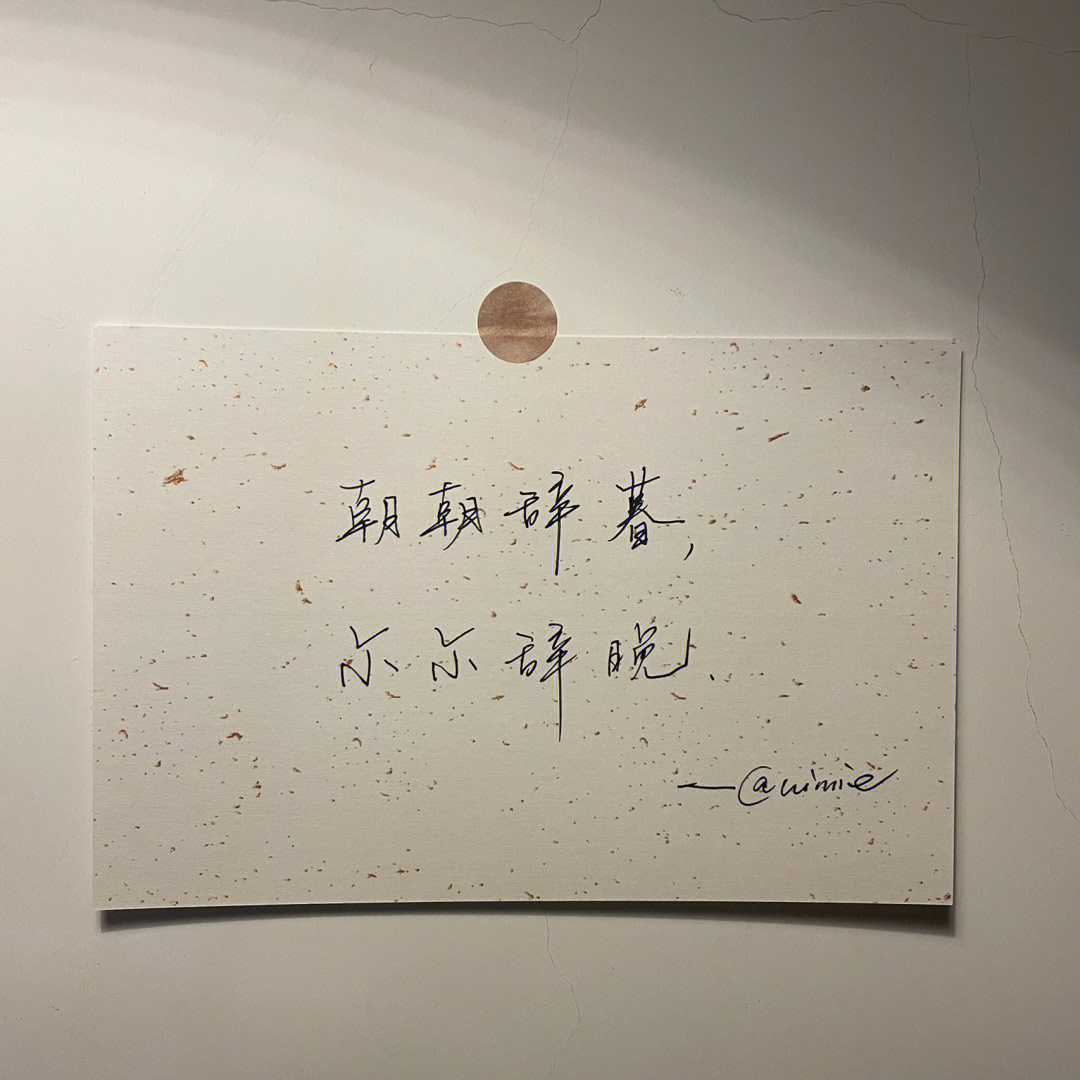 朝朝辞暮，
尔尔辞晚.
—@nimie